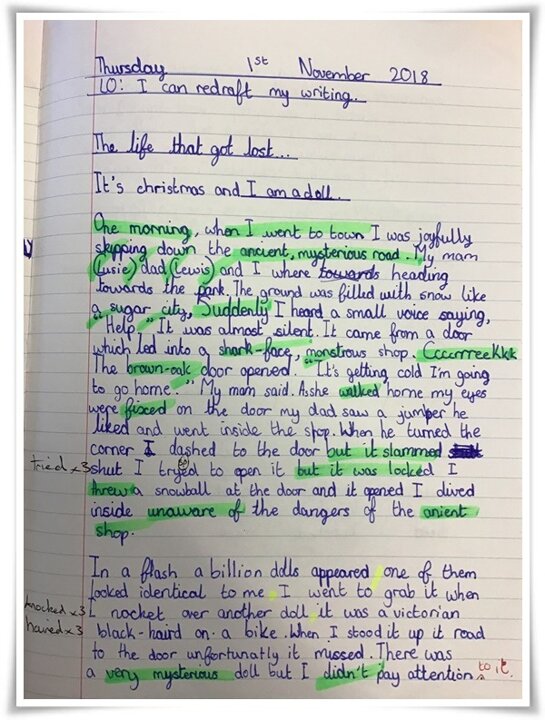 Thursday 1st November 2018
LO: I can redraft my writing.
The life that got lost...
It's christmas and I am a doll.
One morning, when I went to town I was joyfully
skipping down the ancient, mysterious road. My mam
(Lusie) dad (Lewis) and I where towards heading
towards the park. The ground was filled with snow like
a sugar city, Suddenly I heard a small voice saying,
"Help." It was almost silent. It came from a door
which led into a shark-face, monstrous shop. CccrrreeKkk
The brown-oak door opened. "It's getting cold I'm going
to go home." My mam said. As she walked home my eyes
were fixed on the door my dad saw a jumper he
liked and went inside the shop. When he turned the
corner I dashed to the door but it slammed
tried x3 shut I tryed to open it but it was locked I
threw a snowball at the door and it opened I dived
inside unaware of the dangers of the anient
shop.
In a flash a billion dolls appeared one of them
looked identical to me. I went to grab it when
knocked x3 I nocket over another doll, it was a victorian
haired x3 black-haird on a bike. When I stood it up it road
to the door unfortunatly it missed. There was
a very mysterious doll but I didn't pay attention to it.